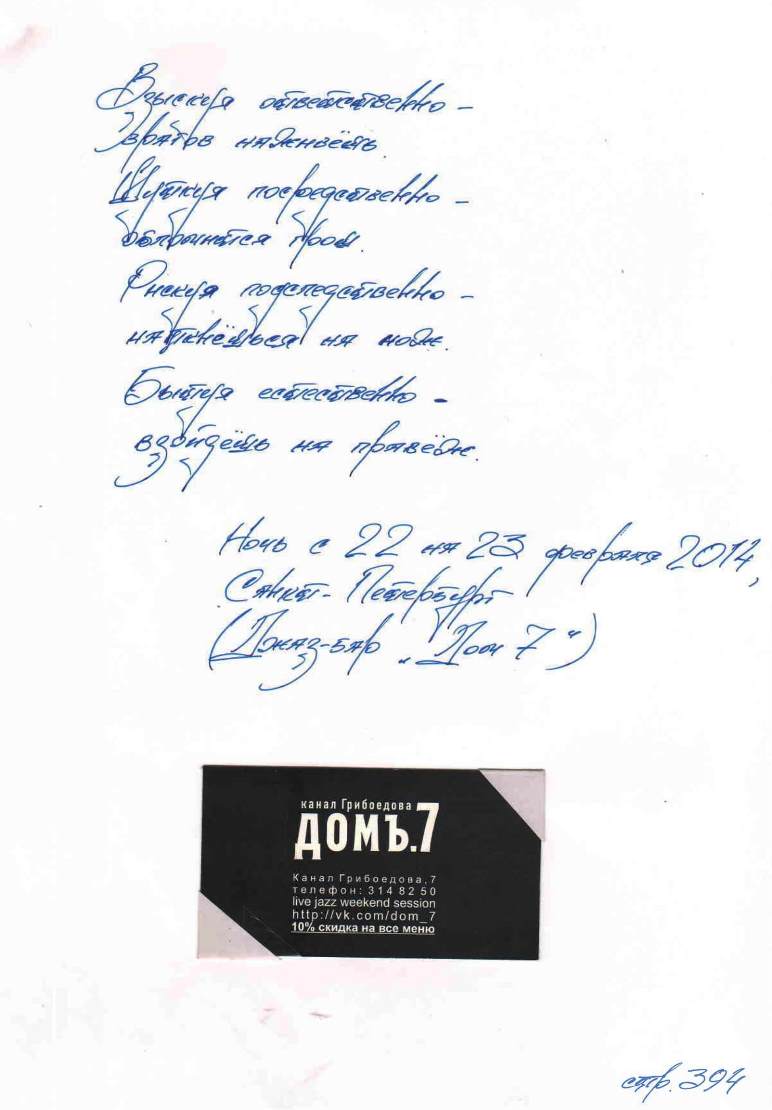 Взыскуя ответственно –
врагов наживёшь.
Шуткуя посредственно –
обпринятся
Рискуя подследственно –
наткнёшься на нож.
Бытуя естественно –
взойдёшь на правёж.
Ночь с 22 на 23 февраля 2014,
Санкт-Петербург
(Джаз-бар „Дом 7“)
канал Грибоедова
ДОМЪ.7
Канал Грибоедова,7
телефон: 314 82 50
live jazz weekend session
http://vk.com/dom_7
10% скидка на все меню
стр. 394